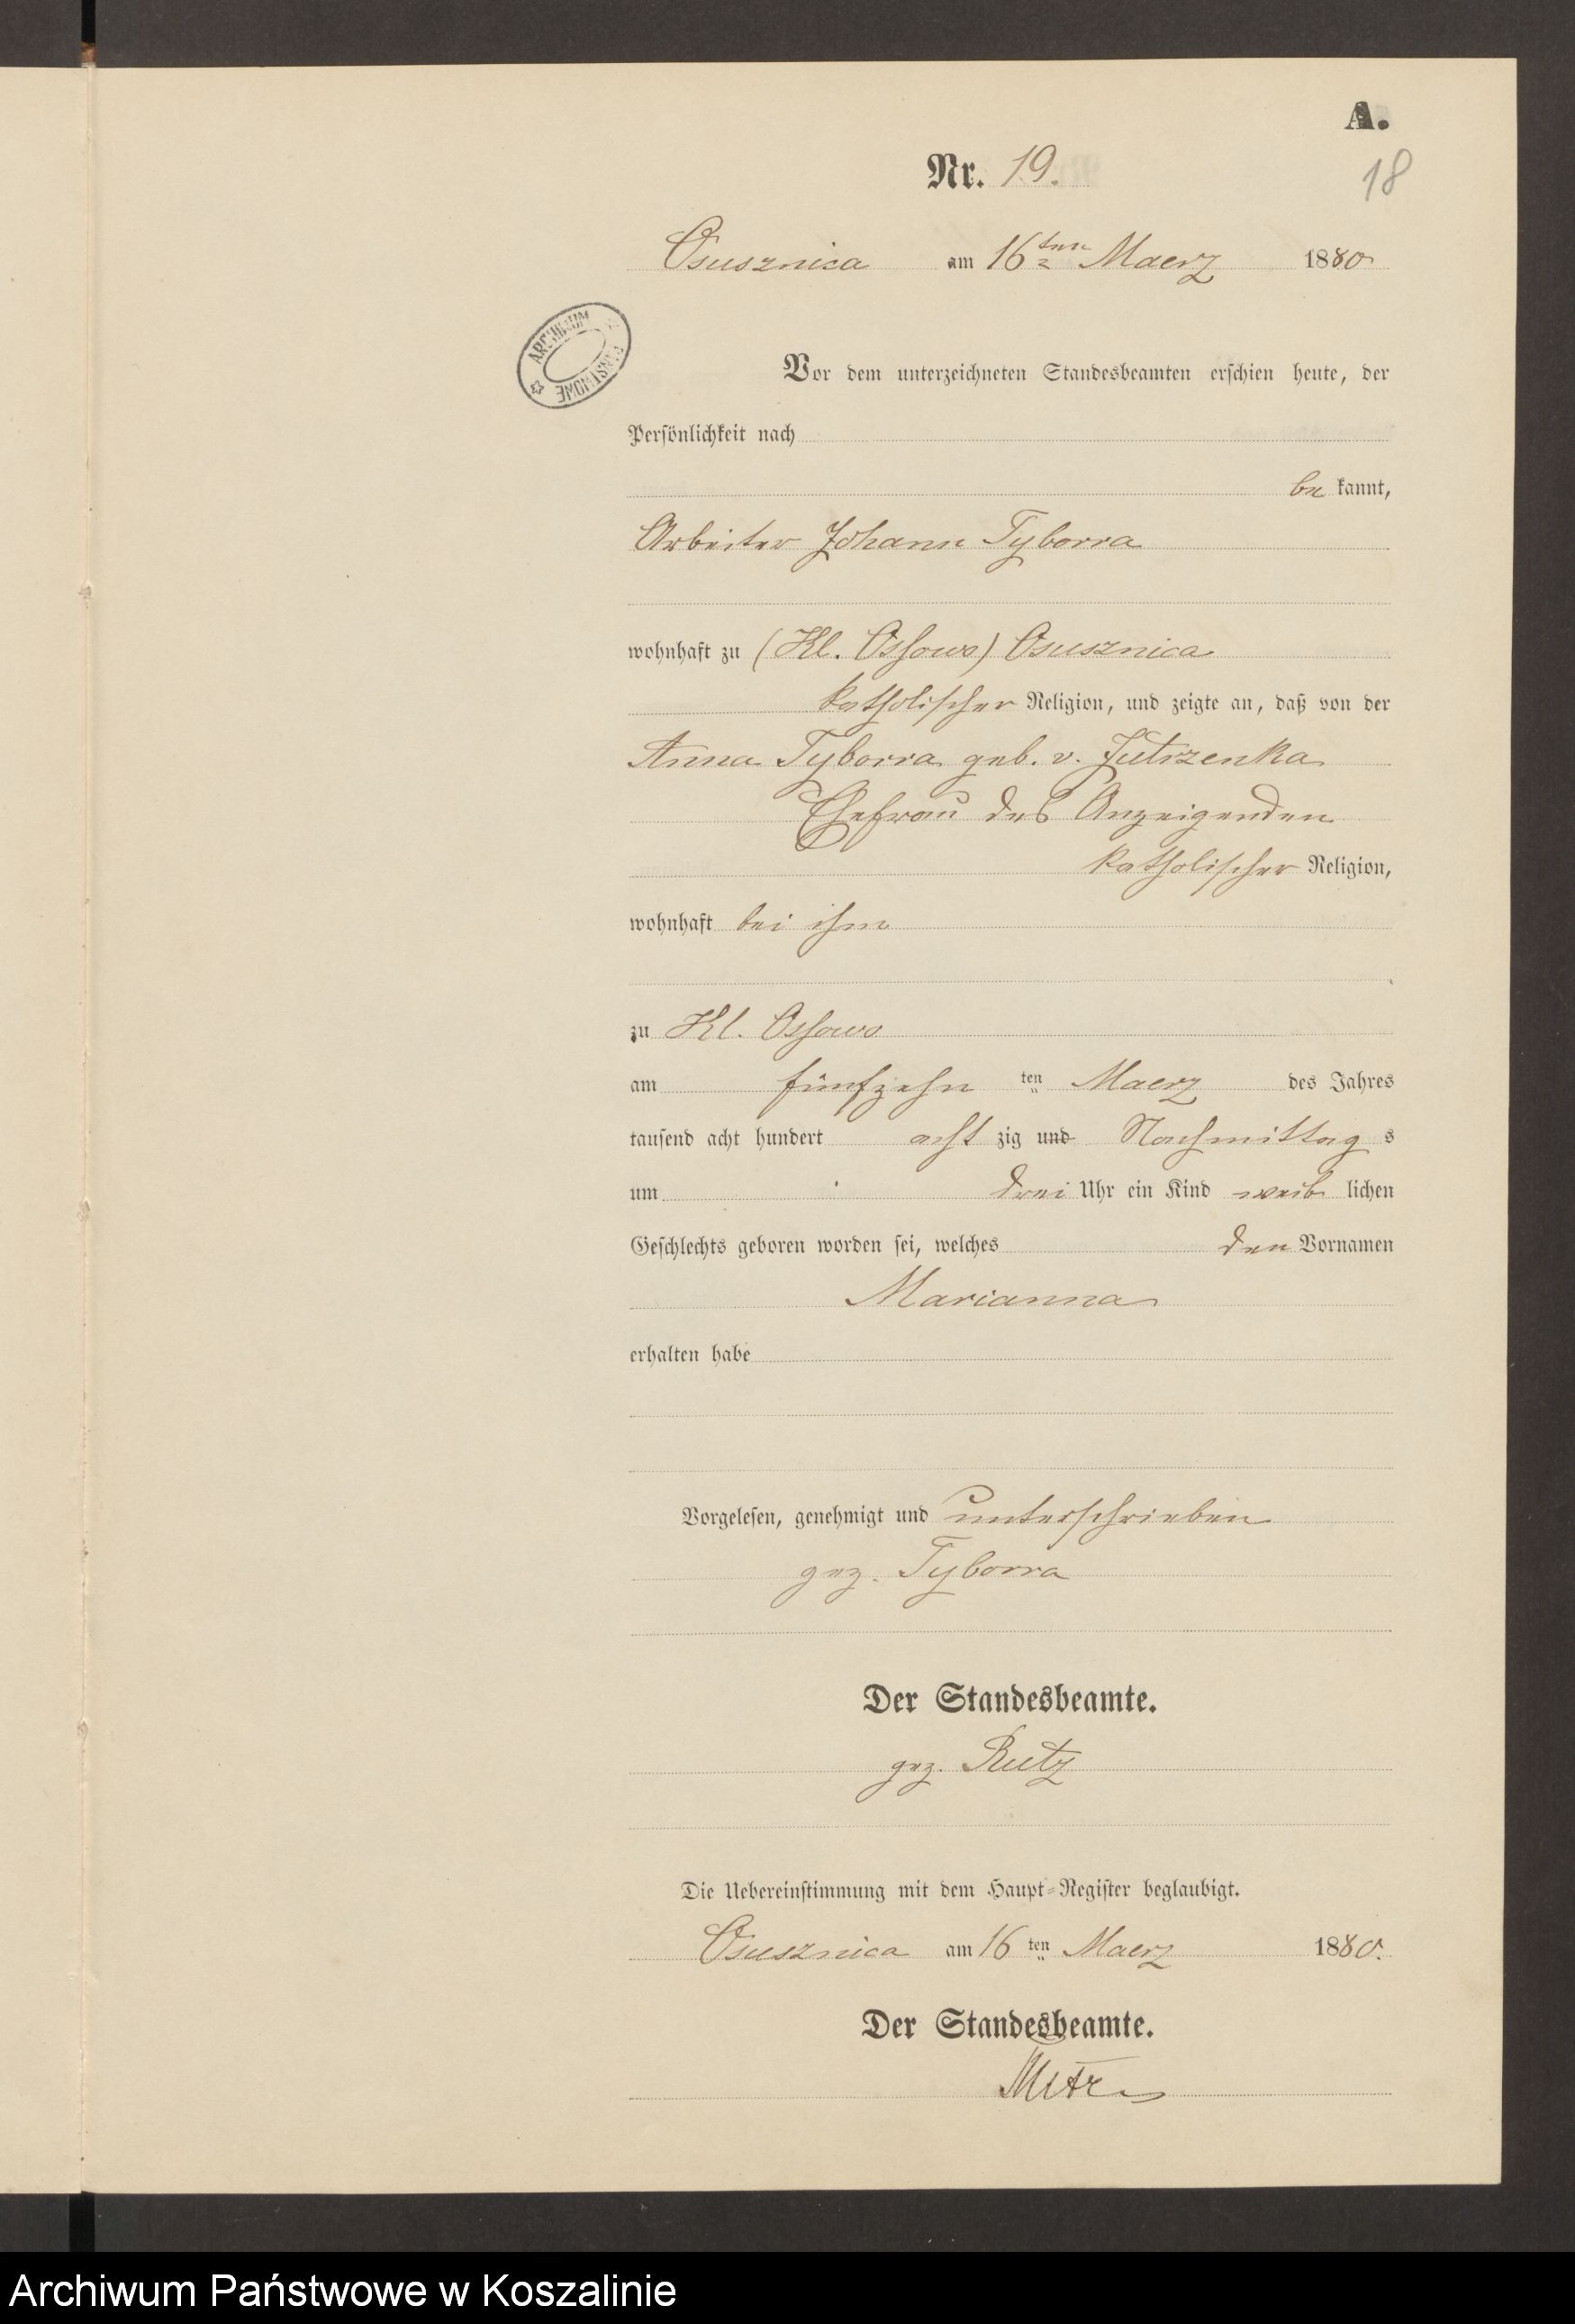 A.
Nr. 19.
18
Osusznica am 16ten Maerz 1880
ARCHIWUM PAŃSTWOWE
Vor dem unterzeichneten Standesbeamten erschien heute, der
Persönlichkeit nach
be kannt,
Arbeiter Johann Tyborra
wohnhaft zu (Kl. Ossowo) Osusznica
katholischer Religion, und zeigte an, daß von der
Anna Tyborra geb. v. Jutrzenka
Ehefrau des Anzeigenden
katholischer Religion,
wohnhaft bei ihm
zu Kl. Ossowo
am fünfzehn ten Maerz des Jahres
tausend acht hundert acht zig und Nachmittag s
um drei Uhr ein Kind weib lichen
Geschlechts geboren worden sei, welches den Vornamen
Marianna
erhalten habe
Vorgelesen, genehmigt und unterschrieben
gez. Tyborra
Der Standesbeamte.
gez. Rutz
Die Uebereinstimmung mit dem Haupt-Register beglaubigt.
Osusznica am 16 ten Maerz 1880.
Der Standesbeamte.
Archiwum Państwowe w Koszalinie